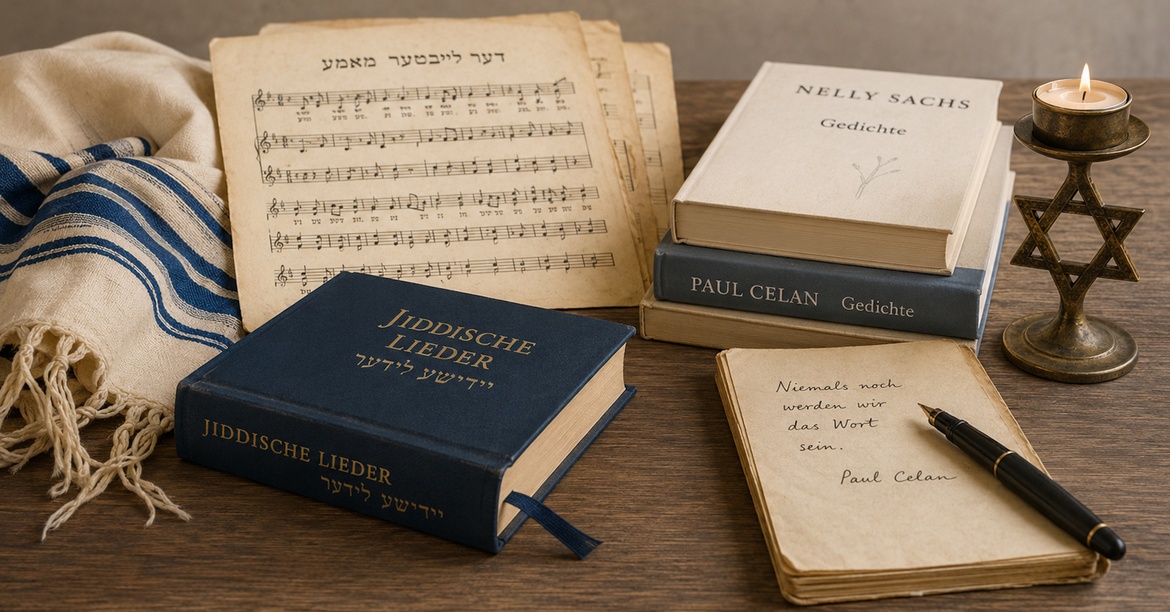 דער לייבטער מאמע
NELLY SACHS
Gedichte
PAUL CELAN Gedichte
JIDDISCHE
LIEDER
יידישע לידער
JIDDISCHE LIEDER
יידישע לידער
Niemals noch
werden wir
das Wort
sein.
Paul Celan